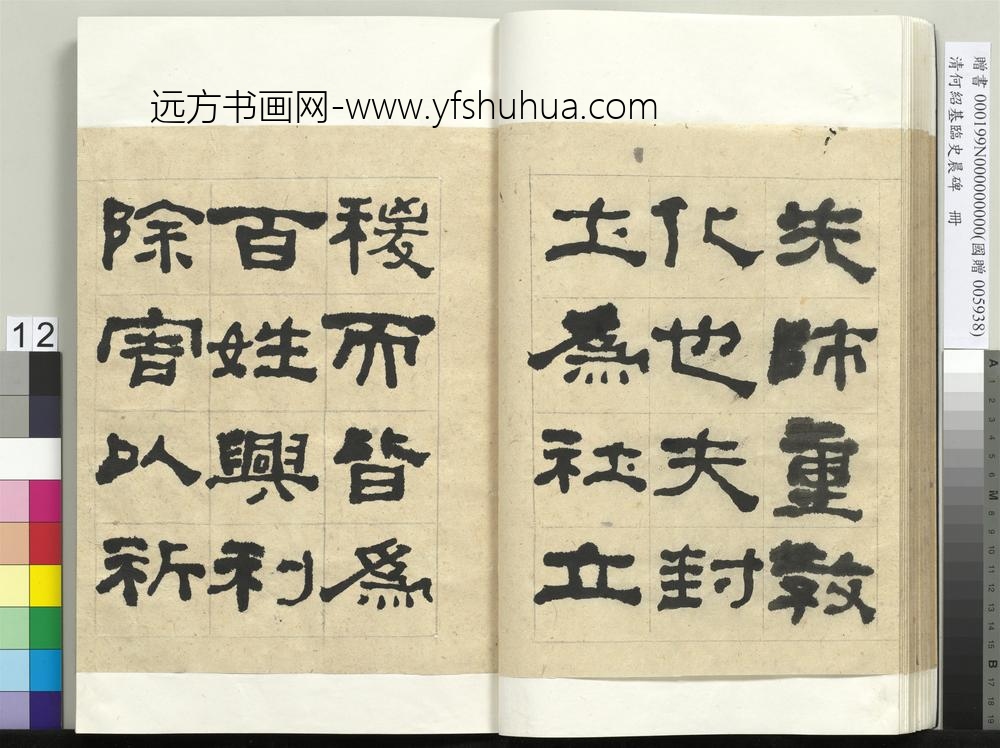 远方书画网-www.yfshuhua.com
先師重敎
化也夫封
土為社立
稷而皆為
百姓興利
除害以祈
贈書 000199N000000000(國贈 005938)
清何紹基臨史晨碑 冊
12
A 1 2 3 4 5 6 M 8 9 10 11 12 13 14 15 B 17 18 19